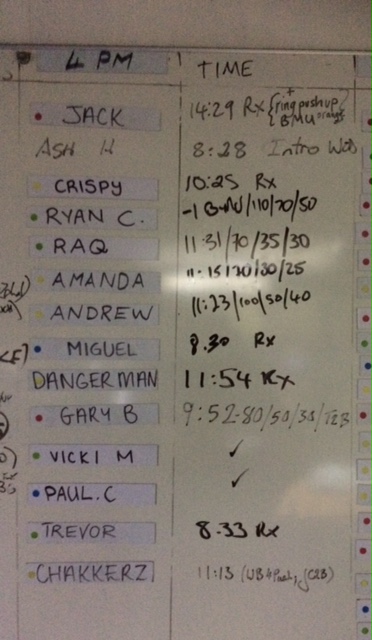 4 PM TIME
JACK 14:29 Rx { ring pushup
+ BMU orange
ASH H 8:28 Intro WOD
CRISPY 10:25 Rx
RYAN C. -1 B-MU/110/70/50
RAQ 11:31/70/35/30
AMANDA 11:15/70/30/25
ANDREW 11:23/100/50/40
MIGUEL 8.30 Rx
DANGERMAN 11:54 Rx
GARY B 9:52-80/50/30/T2B
VICKI M ✓
PAUL.C ✓
TREVOR 8.33 Rx
CHAKKERZ 11:13